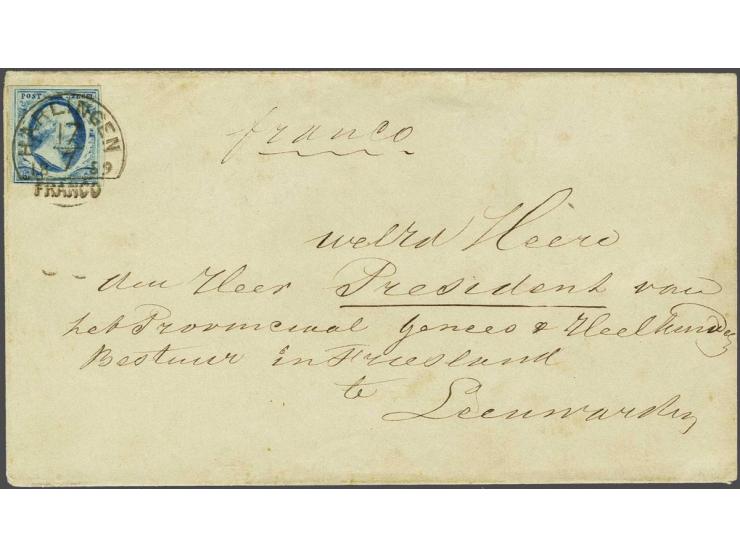 POST ZEGEL
HARLINGEN
17
7
18 59
FRANCO
franco
Heere
den Heer President van
het Provinciaal Genees & Heelkundig
Bestuur in Friesland
te
Leeuwarden